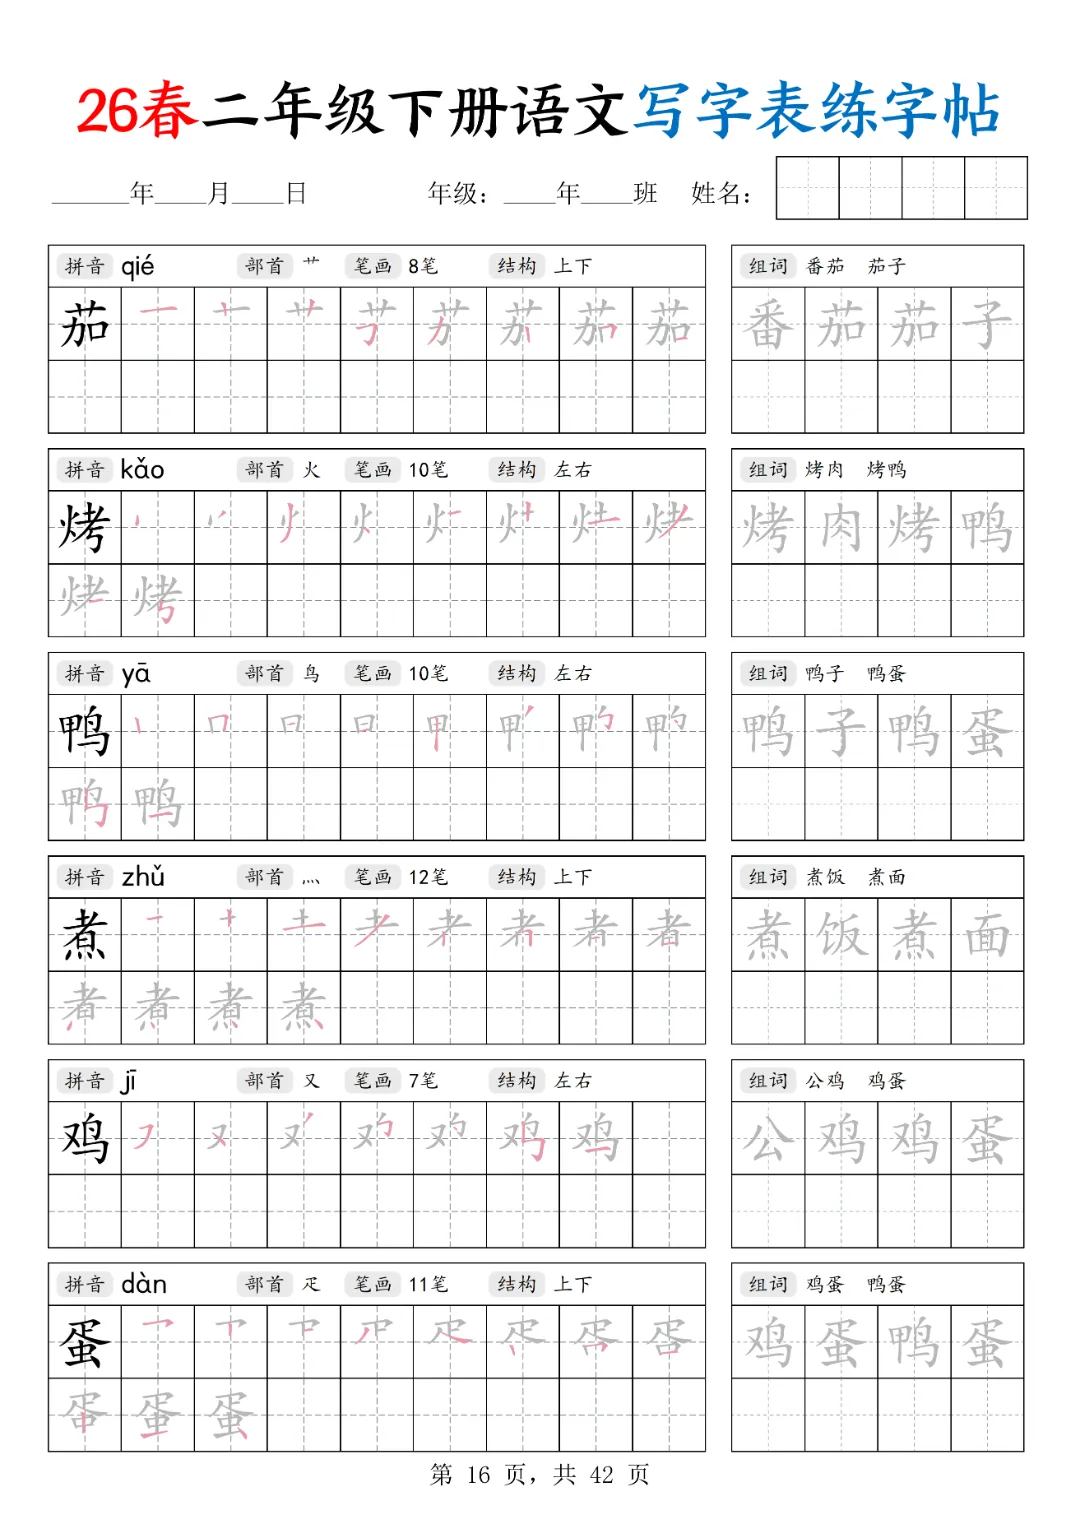 26春二年级下册语文写字表练字帖
______年____月____日 年级：____年____班 姓名：
拼音 qié 部首 艹 笔画 8笔 结构 上下 组词 番茄 茄子
茄 番茄茄子
拼音 kǎo 部首 火 笔画 10笔 结构 左右 组词 烤肉 烤鸭
烤 烤肉烤鸭
拼音 yā 部首 鸟 笔画 10笔 结构 左右 组词 鸭子 鸭蛋
鸭 鸭子鸭蛋
拼音 zhǔ 部首 灬 笔画 12笔 结构 上下 组词 煮饭 煮面
煮 煮饭煮面
拼音 jī 部首 又 笔画 7笔 结构 左右 组词 公鸡 鸡蛋
鸡 公鸡鸡蛋
拼音 dàn 部首 疋 笔画 11笔 结构 上下 组词 鸡蛋 鸭蛋
蛋 鸡蛋鸭蛋
第 16 页，共 42 页